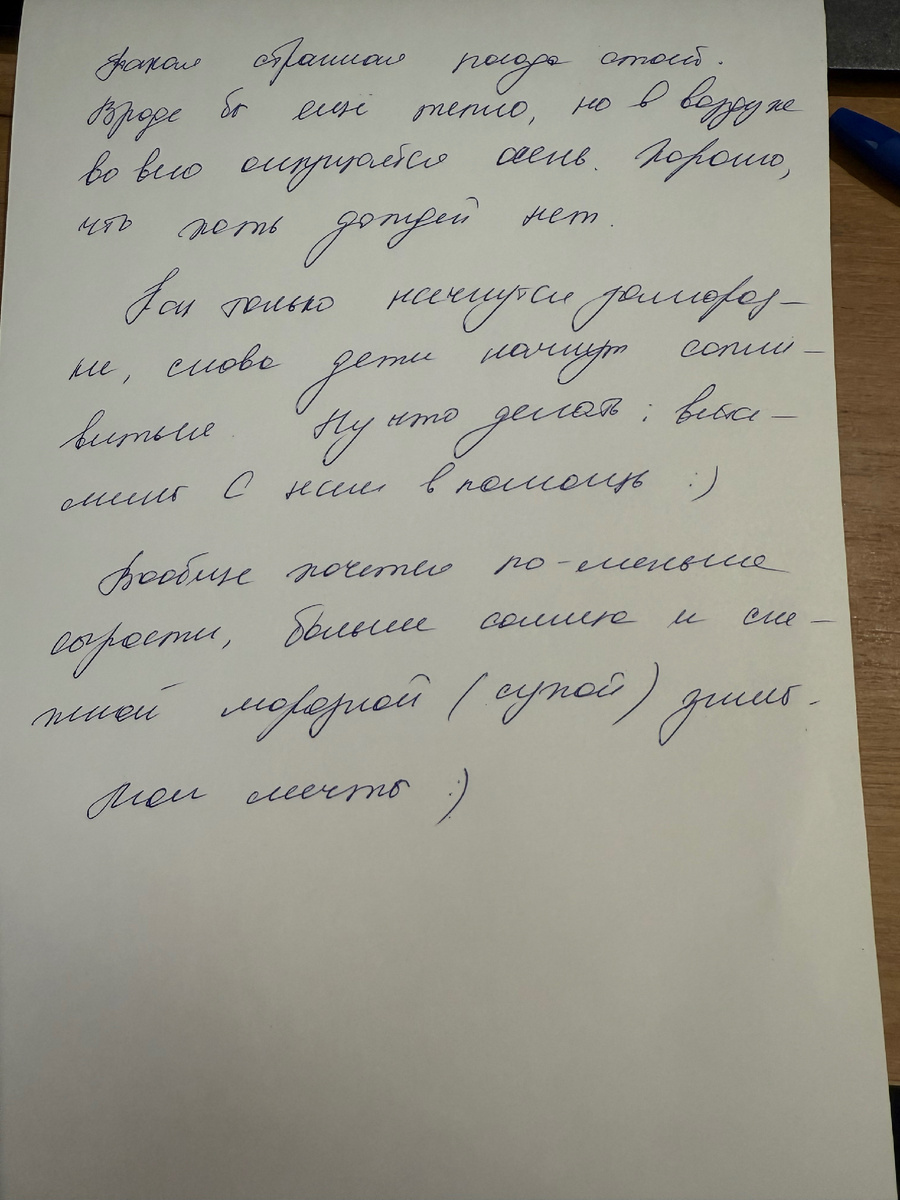 Такая странная погода стоит.
Вроде бы ещё тепло, но в воздухе
во всю ощущается осень. Хорошо,
что хоть дождей нет.
Как только начнутся
не, снова дети начнут сопли-
виться Ну что делать: вита-
мины С нам в помощь :)
Вообще хочется по-меньше
сырости, больше солнца и сне-
жной морозной (сухой) зимы.
Мои мечты :)